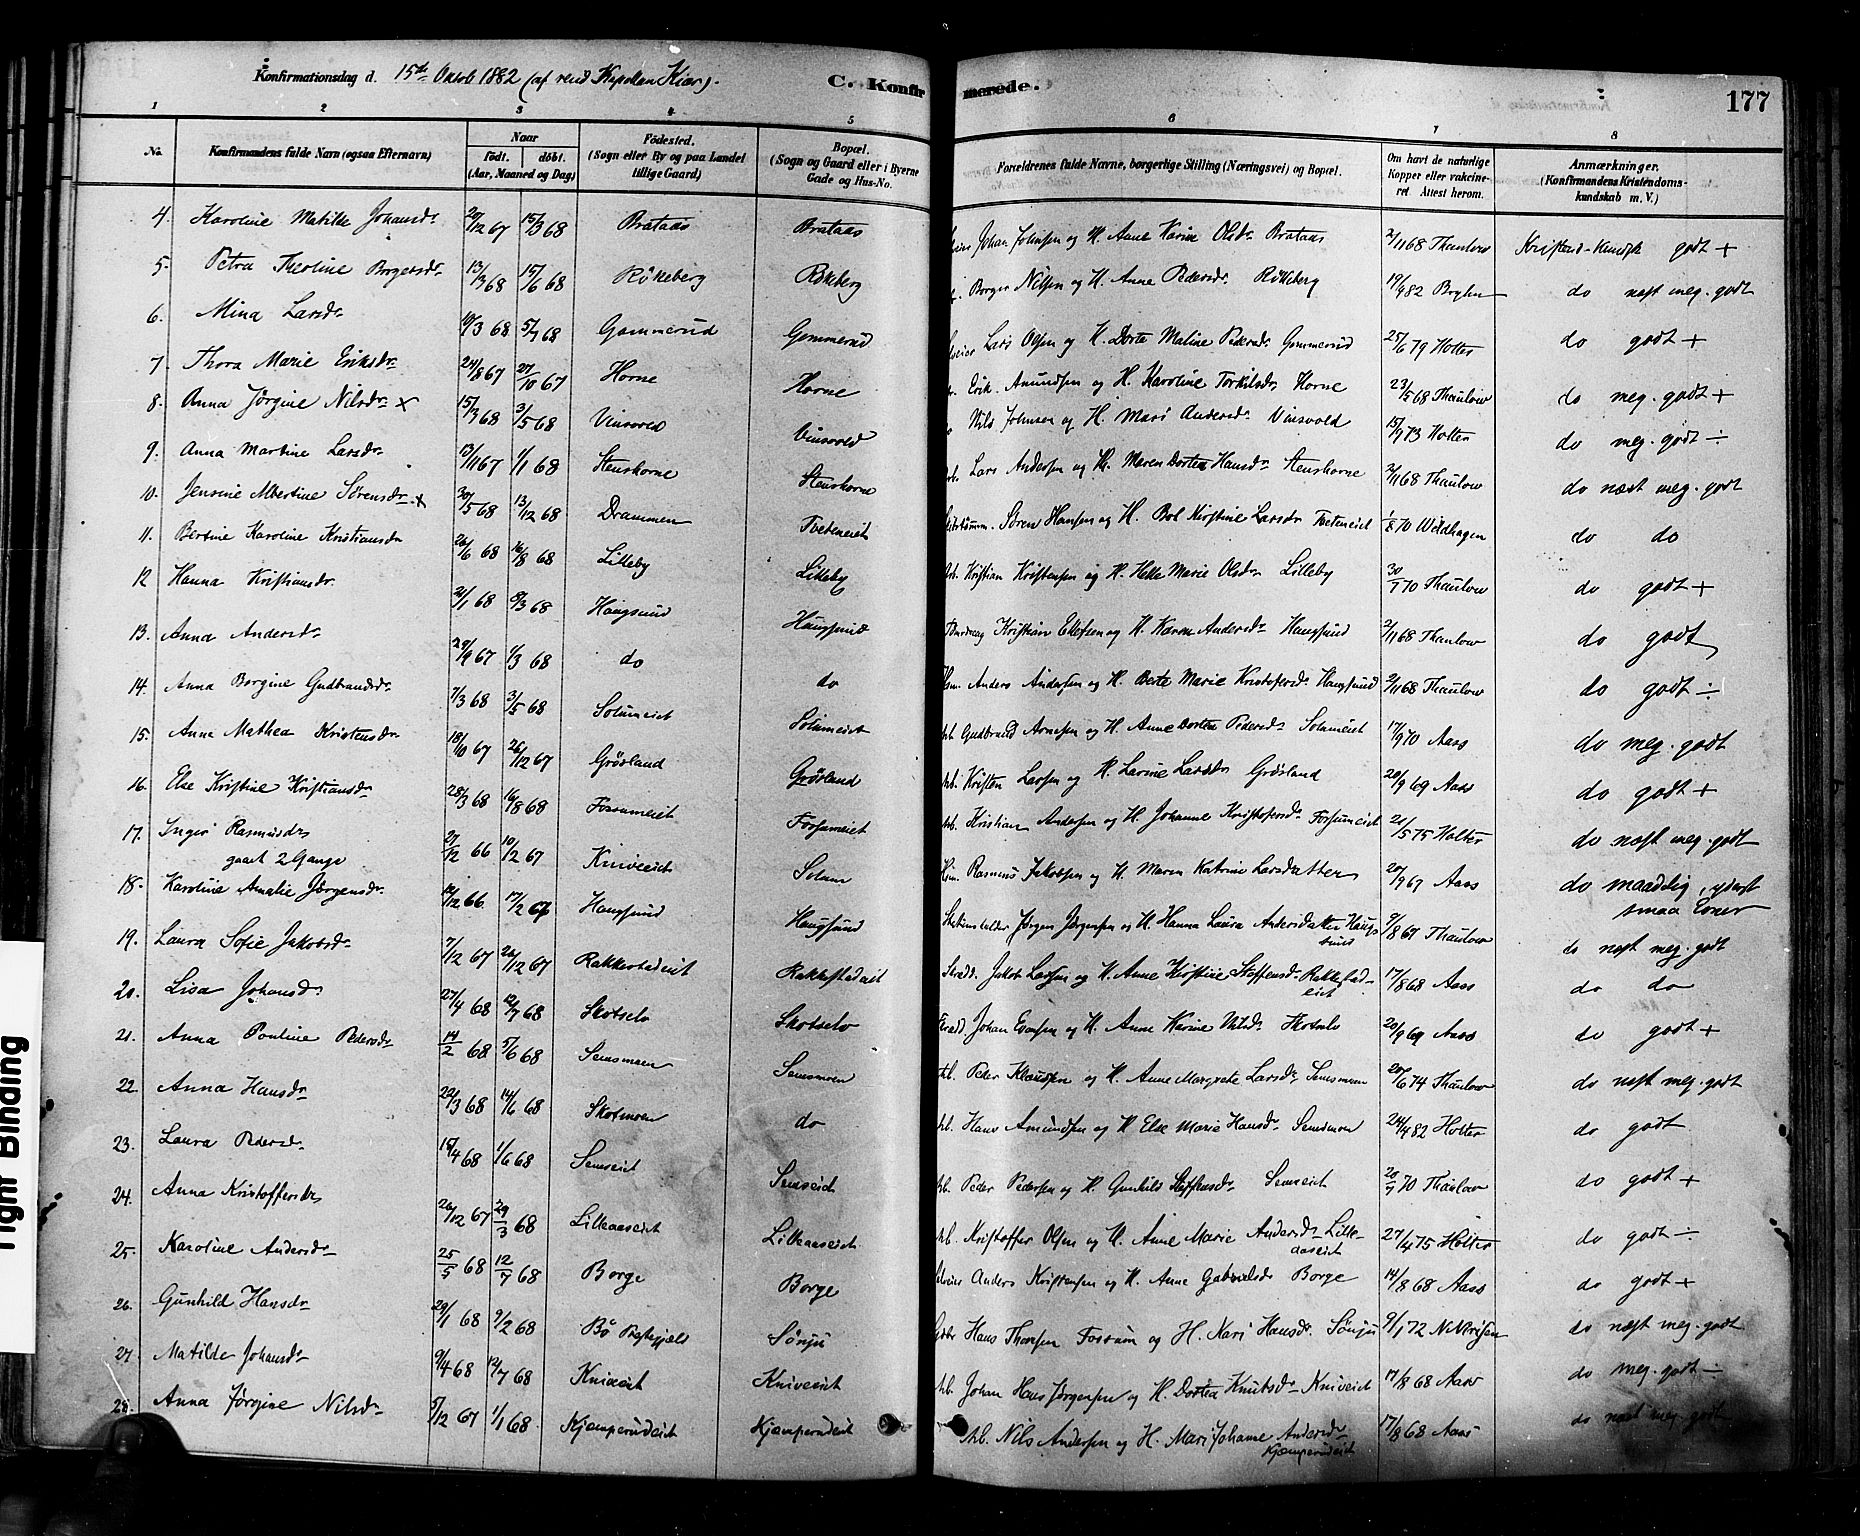 Konfirmationsdag d. 15de Oktob 1882 (af resid Kapellan Kiær).
C. Konfirmerede.
177
1 2 3 4 5 6 7 8
No. Konfirmandens fulde Navn (ogsaa Efternavn) Naar født. døbt. (Aar, Maaned og Dag) Fødested. (Sogn eller By og paa Landet tillige Gaard) Bopæl. (Sogn og Gaard eller i Byerne Gade og Hus-No. Forældrenes fulde Navne, borgerlige Stilling (Næringsvei) og Bopæl. Om havt de naturlige Kopper eller vakcineret. Attest herom. Anmærkninger. (Konfirmandens Kristendomskundskab m. V.)
4. Karoline Matilde Johansdr 15/3 68 Brataas Brataas Johan Johnsen og H. Anne Karine Olsdr Brataas 2/11 68 Thaulow Kristend-Kundsk godt +
5. Petra Theoline Borgersdr 13/3 68 15/6 68 Røkeberg Røkeberg Borger Nilsen og H. Anne Pedersdr Røkeberg 19/9 82 do næst meg. godt
6. Mina Larsdr 5/7 68 Gommerud Gommerud Lars Olsen og H. Dorte Maline Pedersdr Gommerud 25/6 79 Holter do godt +
7. Thora Marie Eriksdr 24/8 67 27/10 67 Horne Horne Erik Amundsen og H. Karoline Torkilsdr Horne 23/5 68 Thaulow do meg. godt +
8. Anna Jørgine Nilsdr x 15/3 68 3/5 68 Vinsvold Vinsvold Nils Johnsen og H. Mari Andersdr Vinsvold 15/9 73 Holter do meg. godt ÷
9. Anna Martine Larsdr 13/11 67 1/1 68 Stenshorne Stenshorne Lars Andersen og H. Maren Dortea Hansdr Stenshorne 2/11 68 Thaulow do næst meg. godt
10. Jensine Albertine Sørensdr x 30/5 68 13/12 68 Drammen Tveteneiet Søren Hansen og H. Bol Kirstine Larsdr Tveteneiet 1/8 70 Wildhagen do do
11. Bertine Karoline Kristiansdr 26/6 68 16/8 68 Lilleby Lilleby Kristian Kristensen og H. Helle Marie Olsdr Lilleby 30/7 70 Thaulow do godt +
12 Hanna Kristiansdr 2/1 68 8/3 68 Haugsund Haugsund Kristian Ellefsen og H. Karen Andersdr Haugsund 2/11 68 Thaulow do godt
13. Anna Andersdr 29/9 67 1/3 68 do do Anders Andersen og H. Berte Marie Kristofersdr Haugsund 2/11 68 Thaulow do godt ÷
14. Anna Borgine Gudbrandsdr 7/3 68 3/5 68 Solumeiet Solumeiet Gudbrand Arnesen og H. Anne Dortea Pedersdr Solumeiet 17/9 70 Aass do meg. godt
15. Anne Mathea Kristensdr 18/10 67 26/12 67 Grøsland Grøsland Kristen Larsen og H. Lavine Larsdr Grøsland 20/9 69 Aass do godt +
16. Else Kristine Kristiansdr 28/3 68 16/8 68 Fossumeiet Fossumeiet Kristian Andersen og H. Johanne Kristofersdr Fossumeiet 21/5 75 Holter do næst meg. godt
17. Inger Rasmusdr 27/12 66 10/2 67 Kniveeiet Solum Rasmus Jakobsen og H. Maren Katrine Larsdatter 20/9 67 Aass do maadelig, yderst
gaaet 2 Gange smaa Evner
18. Karoline Amalie Jørgensdr 12/12 66 17/2 67 Haugsund Haugsund Jørgen Jørgensen og H. Hanna Laura Andersdatter Haugsund 9/8 67 Thaulow do næst meg. godt
19. Laura Sofie Jakobsdr 7/12 67 26/12 67 Rakkestadeiet Rakkestadeiet Jakob Larsen og H. Anne Kirstine Steffensdr Rakkestadeiet 17/8 68 Aass do do
20. Lisa Johansdr 27/4 68 12/7 68 Skotselv Skotselv Johan Evensen og H. Anne Karine Nilsdr Skotselv 20/9 69 Aass do godt +
21. Anna Pouline Pedersdr 14/2 68 5/6 68 Semsmoen Semsmoen Peder Klausen og H. Anne Margrete Larsdr Semsmoen 20/6 74 Thaulow do næst meg. godt
22. Anna Hansdr 22/3 68 14/6 68 Skotmoen do Hans Amundsen og H Else Marie Hansdr Semsmoen 24/9 82 Holter do godt
23. Laura Pedersdr 18/4 68 1/6 68 Semseiet Semseiet Peder Pedersen og H. Gunhild Steffensdr Semseiet 20/7 70 Thaulow do godt +
24. Anna Kristoffersdr 26/12 67 29/3 68 Lilleaaseiet Lilleaaseiet Kristoffer Olsen og H. Anne Marie Andersdr Lilleaaseiet 27/4 75 Holter do godt ÷
25. Karoline Andersdr 25/5 68 12/7 68 Borge Borge Anders Kristensen og H. Anne Gabrielsdr Borge 14/8 68 Aass do godt +
26. Gunhild Hansdr 29/1 68 9/2 68 Bø Prestegjeld Sønju Hans Thorsen Fossum og H. Kari Hansdr Sønju 9/1 72 do næst meg. godt
27. Matilde Johansdr 9/4 68 12/7 68 Kniveeiet Kniveeiet Johan Hans Jørgensen og H. Dortea Knutsdr Kniveeiet 17/8 68 Aass do meg. godt ÷
28. Anna Jørgine Nilsdr 5/12 67 1/1 68 Kjemperudeiet Kjemperudeiet Nils Andersen og H. Mari Johanne Andersdr Kjemperudeiet 17/8 68 Aass do næst meg. godt
Tight Binding